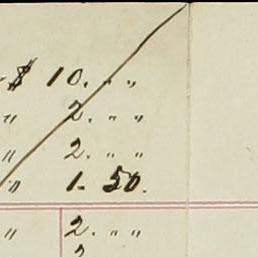 $ 10. " "
" 2. " "
" 2. " "
" 1. 50.
" 2. " "